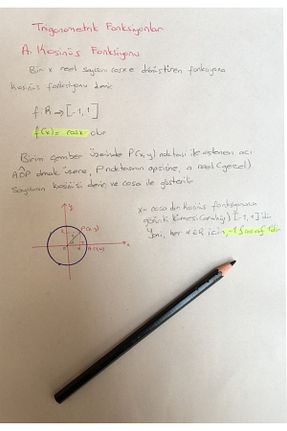 Trigonometrik Fonksiyonlar
A. Kosinüs Fonksiyonu
Bir x reel sayısını cosx e dönüştüren fonksiyona
kosinüs fonksiyonu denir.
f: R → [-1, 1]
f(x) = cosx olur
Birim çember üzerinde P(x,y) noktası ile eşlenen açı
AOP olmak üzere, P noktasının apsisine, α reel (gerçel)
Sayısının kosinüsü denir ve cosα ile gösterilir.
y
P(x,y)
x
x = cosα dır. Kosinüs fonksiyonunun
görüntü kümesi (aralığı) [-1, 1] dir
Yani, her α∈R için, -1 ≤ cosα ≤ 1 dir